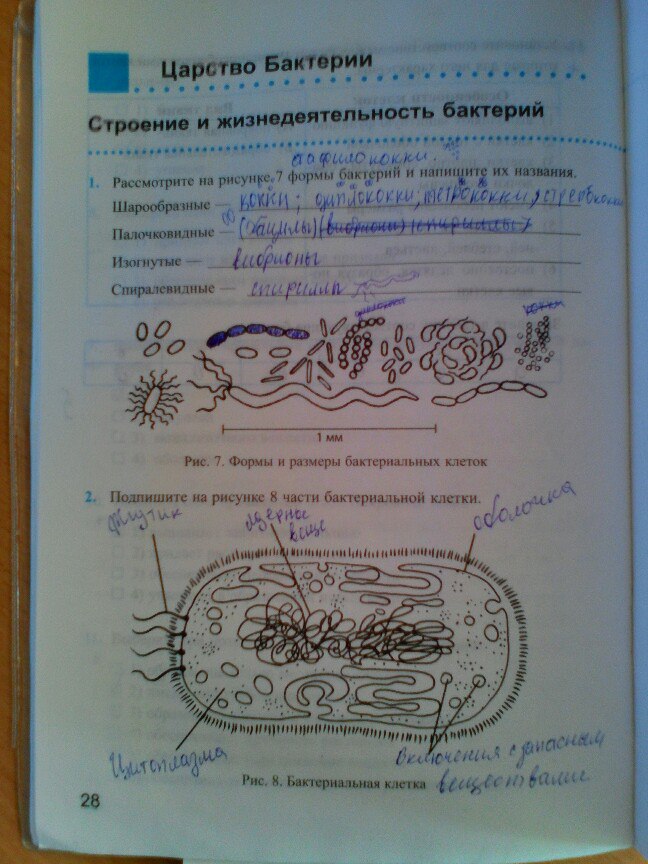 Царство Бактерии
Строение и жизнедеятельность бактерий
стафилококки.
1. Рассмотрите на рисунке 7 формы бактерий и напишите их названия.
Шарообразные — кокки; диплококки; тетрококки, стрептококки
Палочковидные — (бациллы) (вибрионы) (спириллы)
Изогнутые — вибрионы
Спиралевидные — спириллы
1 мм
Рис. 7. Формы и размеры бактериальных клеток
2. Подпишите на рисунке 8 части бактериальной клетки.
жгутик
ядерное
вещ.
оболочка
Цитоплазма
Включения с запасным
веществами
Рис. 8. Бактериальная клетка
28